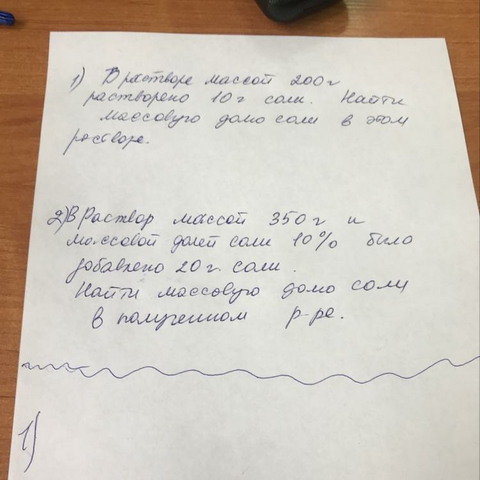 1) В растворе массой 200г
растворено 10 г соли. Найти
массовую долю соли в этом
растворе.
2) В Раствор массой 350 г и
массовой долей соли 10% было
добавлено 20 г. соли.
Найти массовую долю соли
в полученном р-ре.
1)